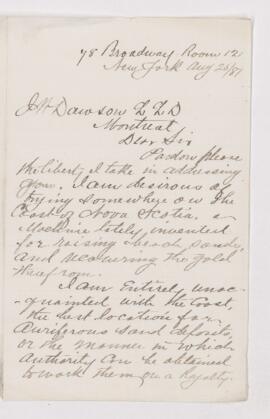 78 Broadway Room 121
New York Aug 26/87
J W Dawson LLD
Montreal
Dear Sir
Pardon please
the liberty I take in addressing
you. I am desirous of
trying somewhere on the
Coast of Nova Scotia, a
Machine lately invented
for raising beach sands,
and recovering the gold
therefrom.
I am Entirely unac-
quainted with the Coast,
the best location for
Auriferous sand deposits,
or the manner in which
Authority can be obtained
to work them on a Royalty.